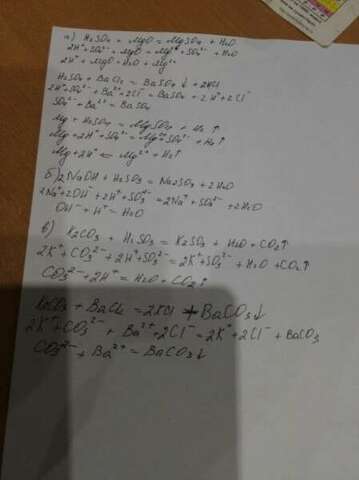 а) H2SO4 + MgO = MgSO4 + H2O
2H⁺ + SO4²⁻ + MgO = Mg²⁺ + SO4²⁻ + H2O
2H⁺ + MgO = H2O + Mg²⁺
H2SO4 + BaCl2 = BaSO4 ↓ + 2HCl
2H⁺ + SO4²⁻ + Ba²⁺ + 2Cl⁻ = BaSO4 + 2H⁺ + 2Cl⁻
SO4²⁻ + Ba²⁺ = BaSO4
Mg + H2SO4 = MgSO4 + H2 ↑
Mg + 2H⁺ + SO4²⁻ = Mg²⁺ SO4²⁻ + H2 ↑
Mg + 2H⁺ = Mg²⁺ + H2 ↑
б) 2NaOH + H2SO4 = Na2SO4 + 2H2O
2Na⁺ + 2OH⁻ + 2H⁺ + SO4²⁻ = 2Na⁺ + SO4²⁻ + 2H2O
OH⁻ + H⁺ = H2O
в) K2CO3 + H2SO4 = K2SO4 + H2O + CO2 ↑
2K⁺ + CO3²⁻ + 2H⁺ + SO4²⁻ = 2K⁺ + SO4²⁻ + H2O + CO2 ↑
CO3²⁻ + 2H⁺ = H2O + CO2 ↑
K2CO3 + BaCl2 = 2KCl + BaCO3 ↓
2K⁺ + CO3²⁻ + Ba²⁺ + 2Cl⁻ = 2K⁺ + 2Cl⁻ + BaCO3
CO3²⁻ + Ba²⁺ = BaCO3 ↓